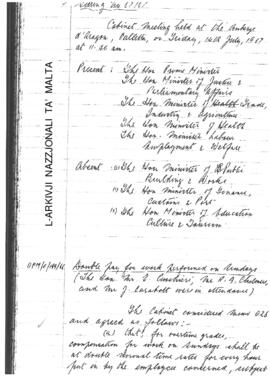 Meeting No
Cabinet Meeting held at the Auberge
d'Aragon, Valletta, on Friday, 14th July, 1967
at 11.30 am.
Present : The Hon Prime Minister
The Hon Minister of Justice &
Parliamentary Affairs
The Hon. Minister of Trade,
Industry & Agriculture
The Hon Minister of Health
The Hon. Minister Labour
Employment & Welfare
Absent : The Hon Minister of Public
Building & Works
The Hon Minister of Finance,
Customs & Port
The Hon Minister of Education
Culture & Tourism
L-ARKIVJI NAZZJONALI TA' MALTA
Double pay for work performed on Sundays
(The Hon. Mr
and Mr J. were in attendance)
The Cabinet considered Memo
and agreed as follows:-
that, for overtime grades,
compensation for work on Sundays shall be
at double normal time rates for every hour
put on by the employee concerned,